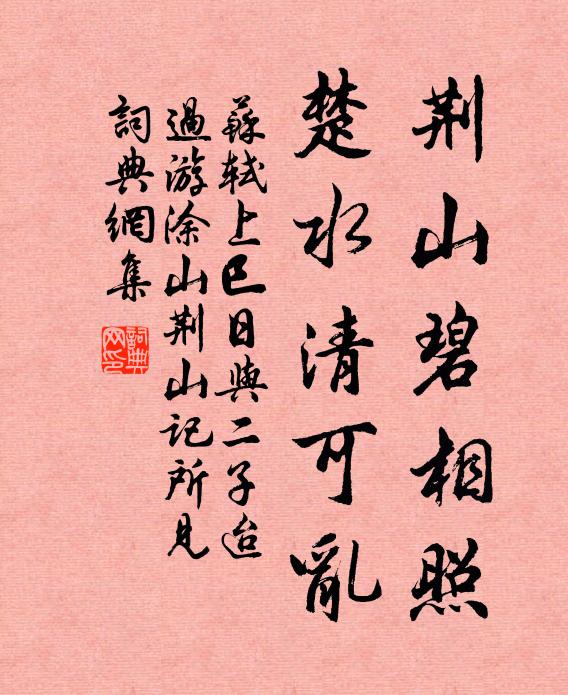 荆山碧相照
楚水清可亂
蘇軾上巳日與二子迨
過游涂山荆山記所見
詞典網集
詞典
网印